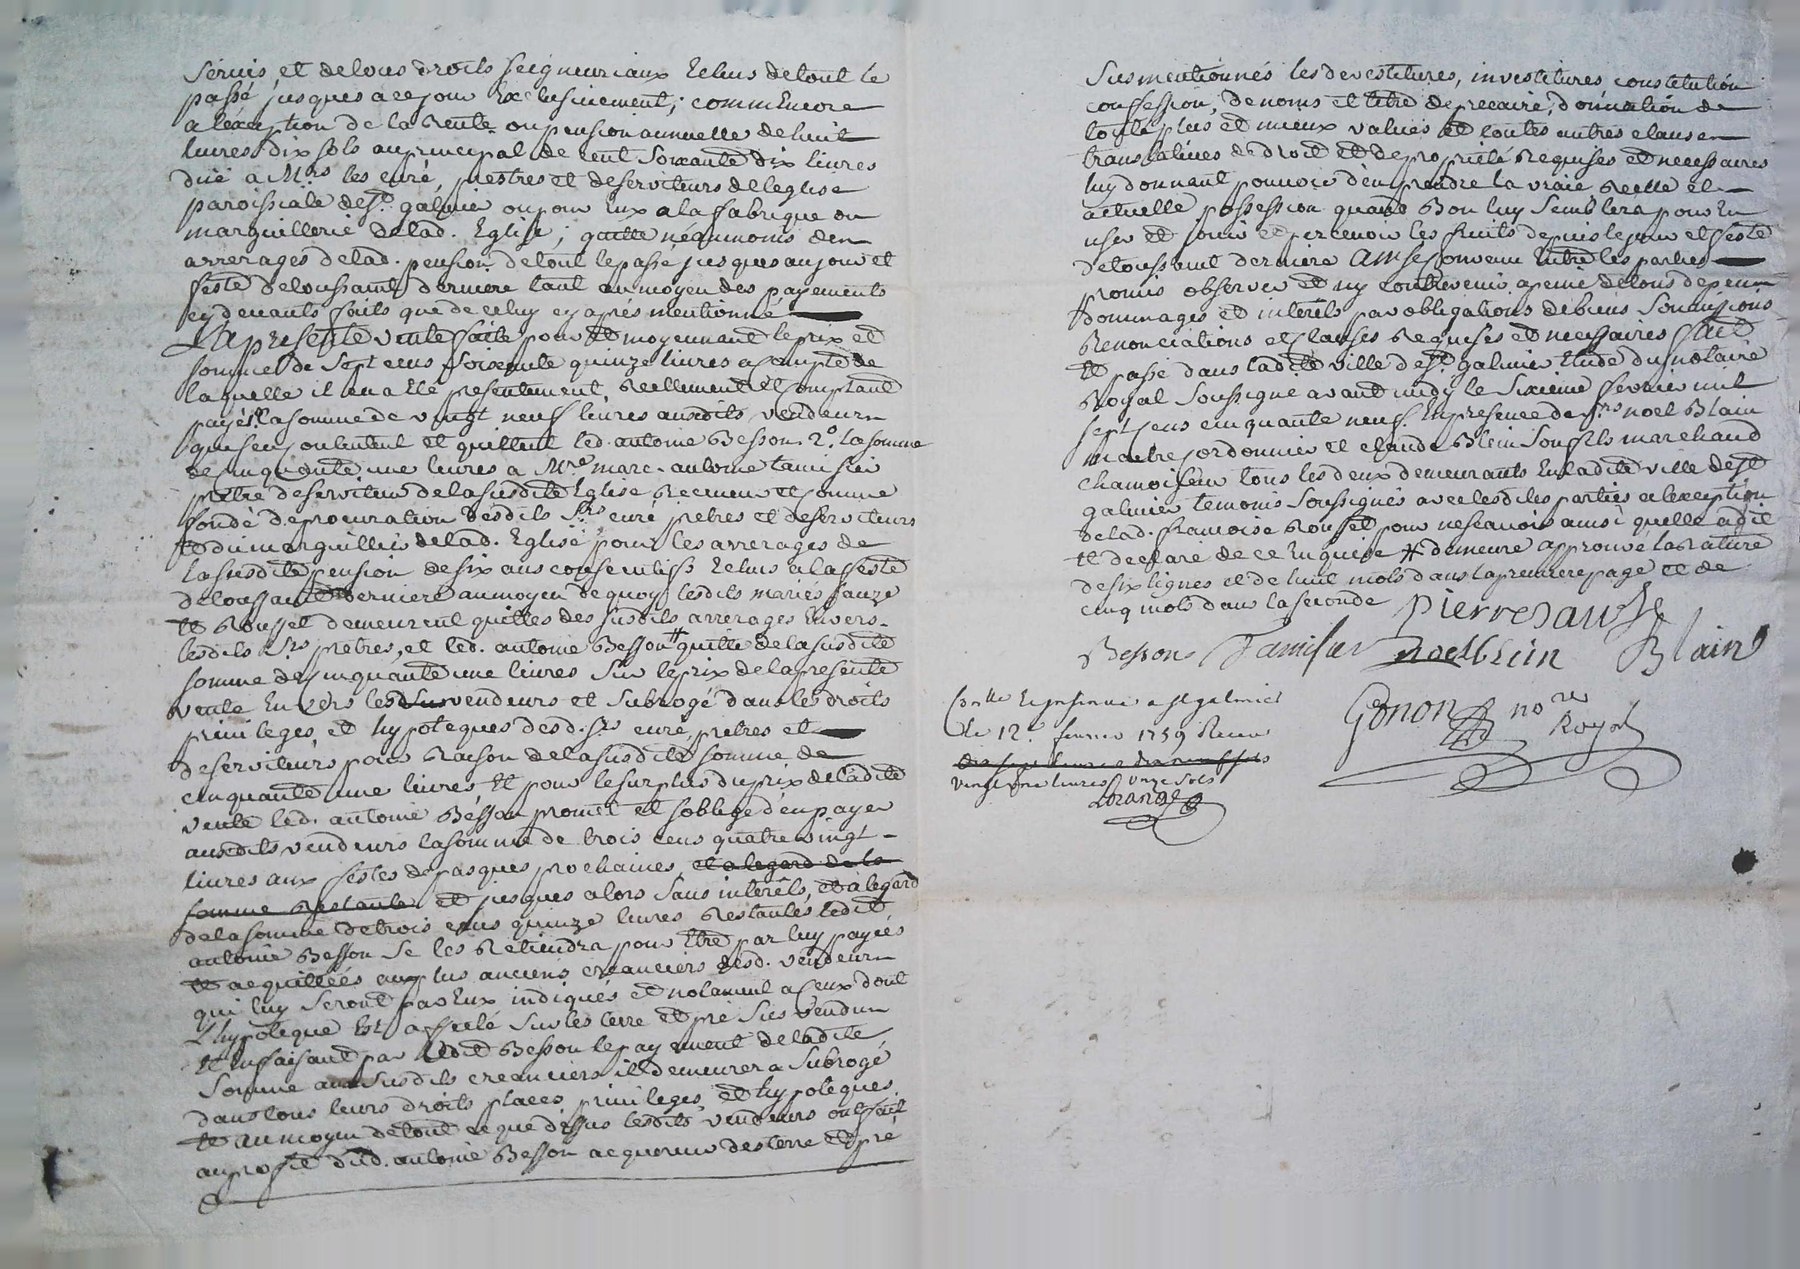 servis et de tous droits seigneuriaux Echus de tout le
passé jusques a ce jour Exclusivement; comm'Encore
a l'exception de la Rente ou pension annuelle de huit
livres dix sols au principal de cent soixante dix livres
düe a Mrs les curé, prestres et deserviteurs de l'eglise
paroissiale de St. galmier ou pour Eux a la fabrique ou
marguillerie de lad. Eglise; quitte néanmoins des
arrerages de lad. pension de tout le passé jusques au jour et
feste de toussaint derniere tant au moyen des payements
cy devants faits que de celuy cy après mentionné
La presente vente faite pour et moyennant le prix et
somme de sept cens soixante quinze livres a compte de
laquelle il en a Eté presentement, Reellement et comptant
payés 1o. la somme de vingt neuf livres ausdits vendeurs
que s'en contentent et quittent led. antoine Besson. 2o. la somme
de cinquante une livres a Mre marc-antoine tamisier
prêtre deserviteur de la susdite Eglise Receveur et comme
fondé de procuration desdits Srs curé prêtres et deserviteurs
et du marguillier de lad. Eglise pour les arrerages de
la susdite pension de six ans consecutifs Echus a la feste
de toussaint derniere au moyen de quoy lesdits mariés sauze
et Rousset demeurent quittes des susdits arrerages Envers
lesdits Srs prêtres, et led. antoine Besson # quitte de la susdite
somme de cinquante une livres sur le prix de la presente
vente Envers lesd. vendeurs et subrogé dans les droits
privileges, et hypoteques desd. Srs curé, prêtres et
deserviteurs pour Raison de la susdite somme de
cinquante une livres Et pour le surplus du prix de ladite
vente led. antoine Besson promet et s'oblige d'en payer
ausdits vendeurs la somme de trois cens quatre vingt
livres aux festes de pasques prochaines, et a legard de la
somme Restante et jusques alors sans interêts, et a legard
de la somme de trois cens quinze livres Restantes ledit
antoine Besson se les Retiendra pour Etre par luy payées
et acquittées aux plus anciens creanciers desd. vendeurs
qui luy seront par Eux indiqués et notament a ceux dont
l'hypoteque Est affecté sur les terre et pré sus vendus
et En faisant par ledit Besson le payement de ladite
somme aux susdits creanciers il demeurera subrogé
dans tous leurs droits places, privileges, et hypoteques
et au moyen de tout ce que dessus lesdits vendeurs ont fait
au profit dud. antoine Besson acquereur des terre et pré
susmentionnés les devestitures, investitures constitution
confession, de noms et titre de precaire, donnation de
toute plus et mieux values et toutes autres clauses
translatives de droit et de proprieté Requises et necessaires
luy donnant pouvoir d'en prendre la vraie Reelle et
actuelle possession quand Bon luy semblera pour En
user et jouir et percevoir les fruits depuis le jour et feste
de toussaint derniere Ainsi convenu Entre les parties
promis observer et n'y contrevenir a peine de tous depens
dommages et interêts par obligations de biens soumissions
Renonciations et clauses Requises et necessaires fait
et passé dans ladite ville de St. galmier Etude du notaire
Royal soussigné avant midy le sixieme fevrier mil
sept cens cinquante neuf. En presence de Srs noel Blain
maitre cordonnier et claude Blein son fils marchand
chamoiseur tous les deux demeurants En ladite ville de St
galmier temoins soussignés avec lesdites parties a l'exception
de lad. francoise Rousset pour ne scavoir ainsi qu'elle a dit
et declaré de ce Enquise # demeure approuvé la Rature
de six lignes et de huit mots dans la premiere page et de
cinq mots dans la seconde
Pierre sauze
Besson Tamisier noel blein Blain
Conlle Et insinué a St galmier
Le 12e. fevrier 1759 Receu
vingt une livres onze sols
Gonon nore
Royal